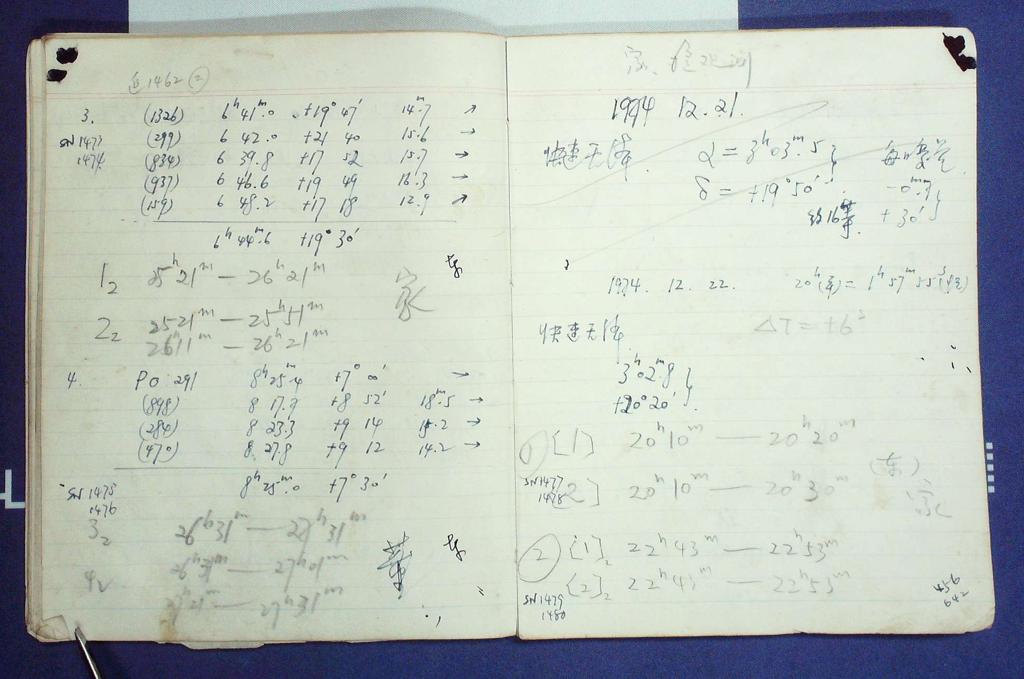 1462 ②
3. (1326) 6ʰ 41ᵐ.0 +19° 47' 14ᵐ.7 ↗
SN1473 (299) 6 42.0 +21 40 15.6 →
1474 (834) 6 39.8 +17 52 15.7 →
(937) 6 46.6 +19 49 16.3 →
(159) 6 48.2 +17 18 12.9 ↗
6ʰ 44ᵐ.6 +19° 30'
1₂ 25ʰ21ᵐ — 26ʰ21ᵐ
2₂ 2521ᵐ — 25ʰ51ᵐ
26ʰ11ᵐ — 26ʰ21ᵐ
4. PO 291 8ʰ25ᵐ.4 +7° 00' →
(898) 8 17.9 +8 52' 18ᵐ.5 →
(284) 8 23.3 +9 14 15.2 →
(470) 8 27.8 +9 12 14.2 →
8ʰ25ᵐ.0 +7° 30'
SN1475
1476
3₂ 26ʰ31ᵐ — 27ʰ31ᵐ
4₂ 26ʰ31ᵐ — 27ʰ01ᵐ
27ʰ21ᵐ — 27ʰ31ᵐ
1974 12.21.
快速天体 α = 3ʰ03ᵐ.5
δ = +19°50'
约16等 +30'
1974. 12. 22. 20ʰ = 1ʰ57ᵐ55ˢ
快速天体 ΔT = +6ˢ
3ʰ02ᵐ.8
+20°20'
① [1] 20ʰ10ᵐ — 20ʰ20ᵐ
SN1477
1478 [2] 20ʰ10ᵐ — 20ʰ30ᵐ
(东)
② [1]₂ 22ʰ43ᵐ — 22ʰ53ᵐ
[2]₂ 22ʰ43ᵐ — 22ʰ53ᵐ
SN1479
1480
456
642